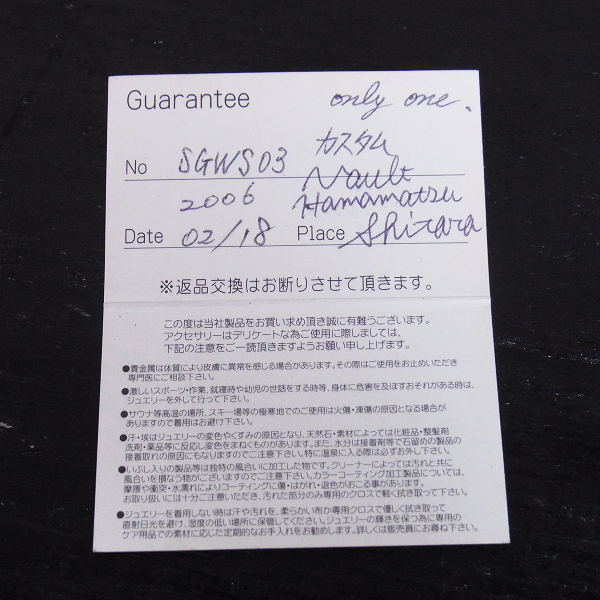 Guarantee
only one.
No SGWS03
カスタム
Vault
2006
Hamamatsu
Date 02/18 Place Shitara
※返品交換はお断りさせて頂きます。
この度は当社製品をお買い求め頂き誠に有難うございます。
アクセサリーはデリケートな為ご使用に際しましては、
下記の注意をご一読頂きますようお願い申し上げます。
●貴金属は体質により皮膚に異常を感じる場合があります。その際はご使用をお止めいただき
専門医にご相談下さい。
●激しいスポーツ・作業、就寝時や幼児の世話をする時等、身体に危害を及ぼすおそれがある時は、
ジュエリーを外して行って下さい。
●サウナ等高温の場所、スキー場等の極寒地でのご使用は火傷・凍傷の原因となる場合が
ありますので着用はお避け下さい。
●汗・埃はジュエリーの変色やくすみの原因となり、天然石・素材によっては化粧品・整髪剤
洗剤・薬品等に反応し変色をまねくものがあります。また、水分は接着剤等で石留めの製品の
接着取れの原因にもなりますのでご注意下さい。特に温泉に入る際は必ずお外し下さい。
●いぶし入りの製品等は独特の風合いに加工した物です。クリーナーによっては汚れと共に
風合いを損なう物がございますのでご注意下さい。カラーコーティング加工製品については、
摩擦や衝突・水濡れによりコーティングに傷・はがれ・退色がおこる事があります。
お取り扱いには十分ご注意いただき、汚れた部分のみ専用のクロスで軽く拭き取って下さい。
●ジュエリーを着用しない時は汗や汚れを、柔らかい布か専用クロスで優しく拭き取って
直射日光を避け、湿度の低い場所に保管してください。ジュエリーの輝きを保つ為に専用の
ケア用品での素材に応じた定期的なお手入れをお勧めします。詳しくは販売員にお尋ね下さい。